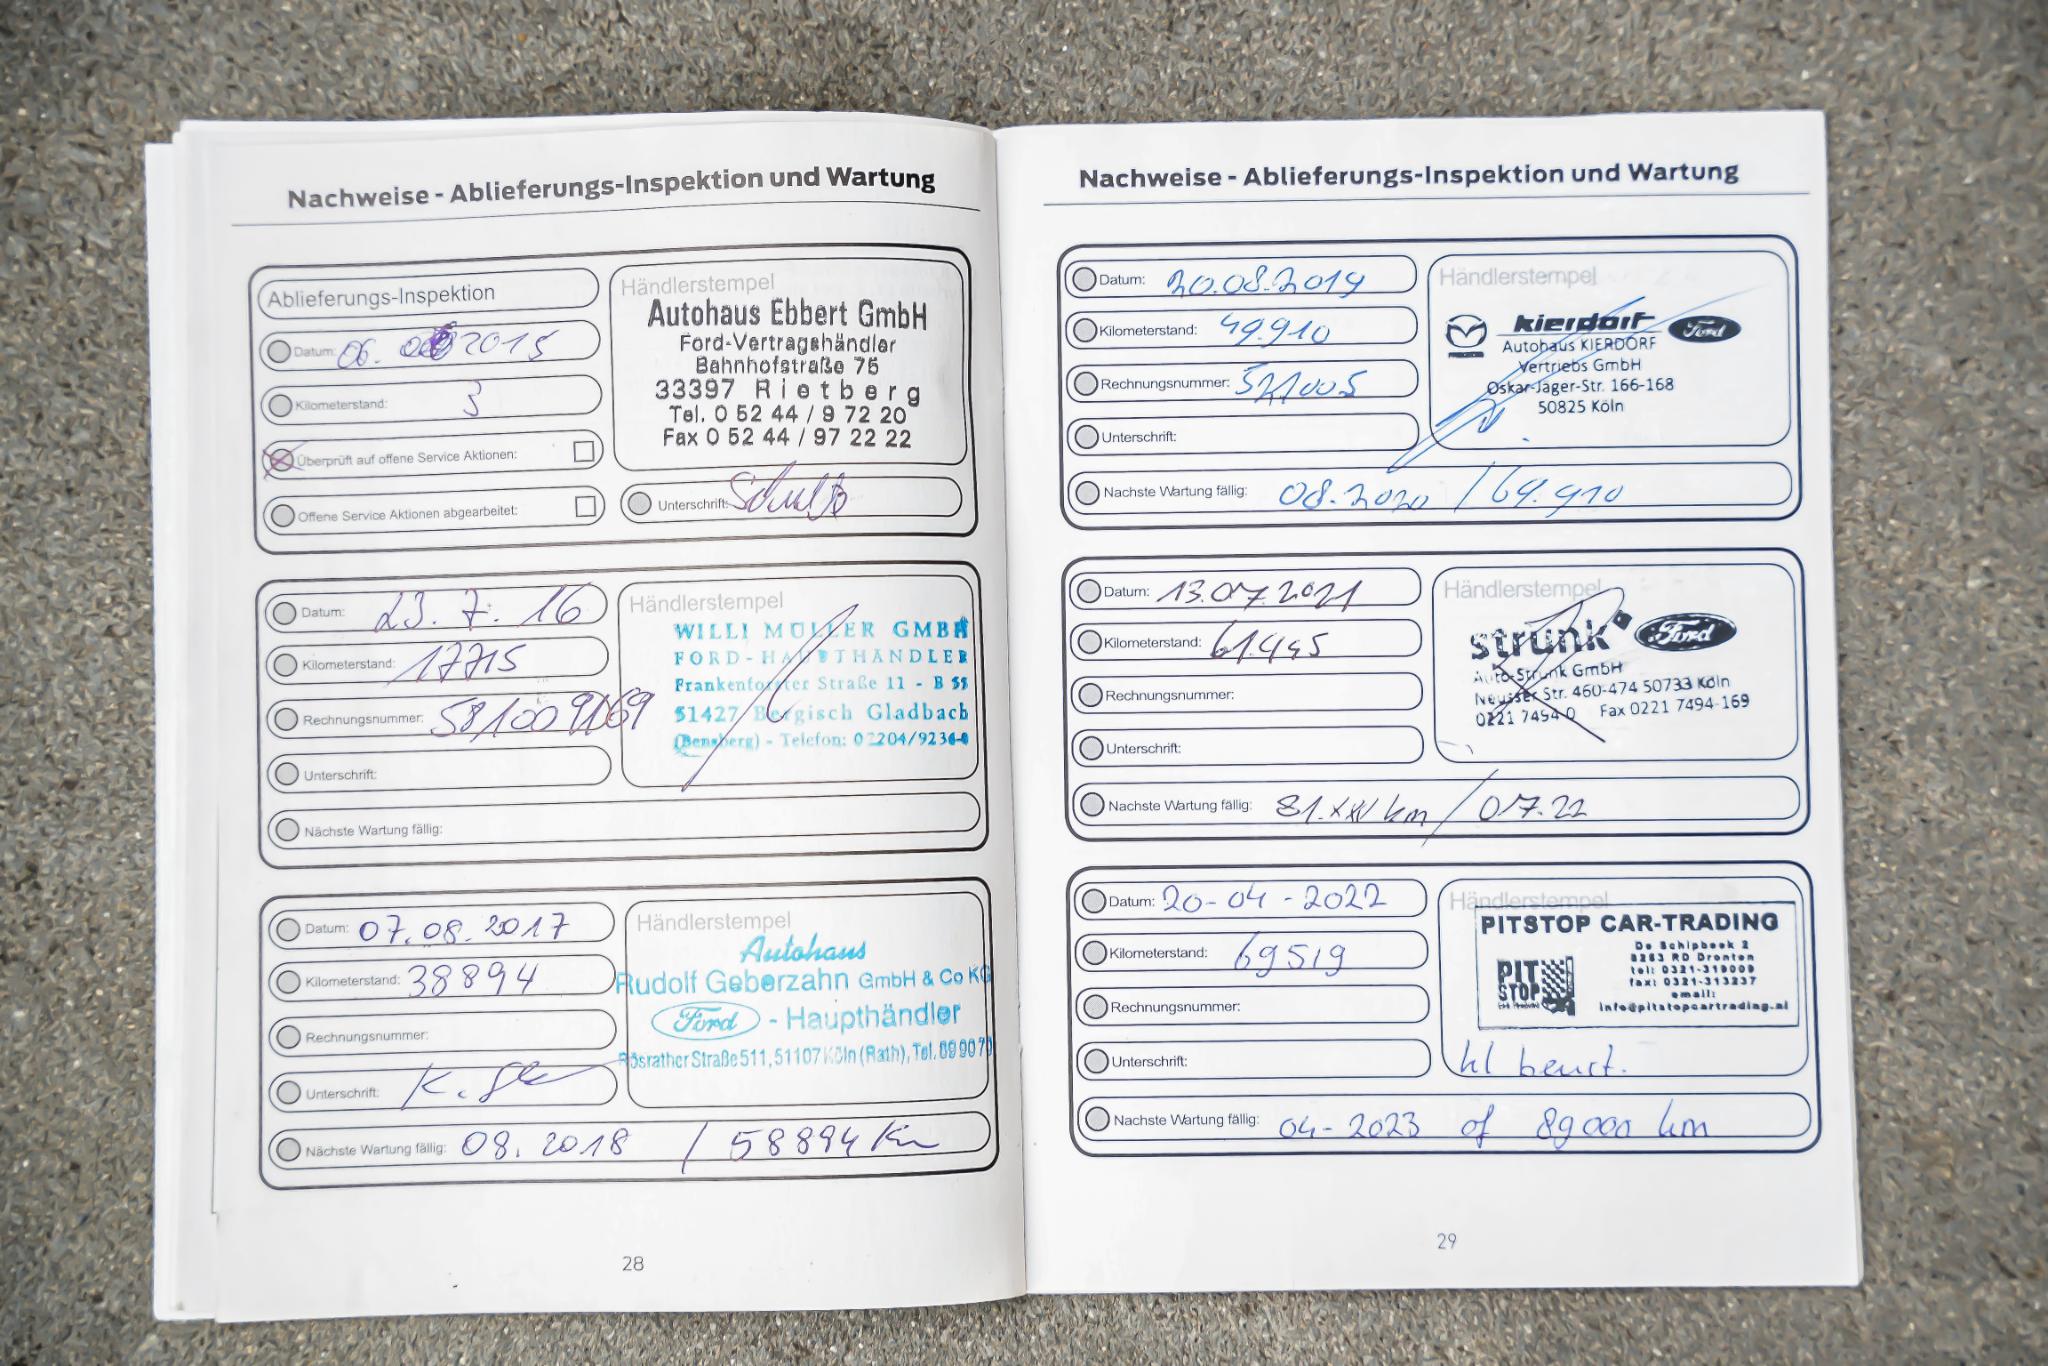 Nachweise - Ablieferungs-Inspektion und Wartung
Ablieferungs-Inspektion
Datum: 06. 2015
Kilometerstand: 3
Überprüft auf offene Service Aktionen:
Offene Service Aktionen abgearbeitet:
Händlerstempel
Autohaus Ebbert GmbH
Ford-Vertragshändler
Bahnhofstraße 75
33397 Rietberg
Tel. 0 52 44 / 9 72 20
Fax 0 52 44 / 97 22 22
Unterschrift:
Datum: 23. 7. 16
Kilometerstand: 17715
Rechnungsnummer:
Unterschrift:
Nächste Wartung fällig:
Händlerstempel
WILLI MÜLLER GMBH
FORD-HAUPTHÄNDLER
Frankenforster Straße 11 - B 55
51427 Bergisch Gladbach
(Bensberg) - Telefon: 02204/9236-0
Datum: 07.08.2017
Kilometerstand: 38894
Rechnungsnummer:
Unterschrift:
Nächste Wartung fällig: 08.2018 / 58894 Km
Händlerstempel
Autohaus
Rudolf Geberzahn GmbH & Co KG
Ford - Haupthändler
Rösrather Straße 511, 51107 Köln (Rath), Tel. 89 90 70
28
Nachweise - Ablieferungs-Inspektion und Wartung
Datum: 20.08.2019
Kilometerstand: 49.910
Rechnungsnummer:
Unterschrift:
Nächste Wartung fällig: 08.2020 / 69.910
Händlerstempel
kierdorf Ford
Autohaus KIERDORF
Vertriebs GmbH
Oskar-Jäger-Str. 166-168
50825 Köln
Datum: 13.07.2021
Kilometerstand: 61.445
Rechnungsnummer:
Unterschrift:
Nächste Wartung fällig: 81.xxx km / 07.22
Händlerstempel
strunk Ford
Auto-Strunk GmbH
Neusser Str. 460-474 50733 Köln
0221 7494-0 Fax 0221 7494-169
Datum: 20-04-2022
Kilometerstand: 69519
Rechnungsnummer:
Unterschrift:
Nächste Wartung fällig: 04-2023 of 89000 km
Händlerstempel
PITSTOP CAR-TRADING
De Schipbeek 2
8253 RD Dronten
tel: 0321-319009
fax: 0321-313237
email:
info@pitstopcartrading.nl
PIT
STOP
kl beurt.
29